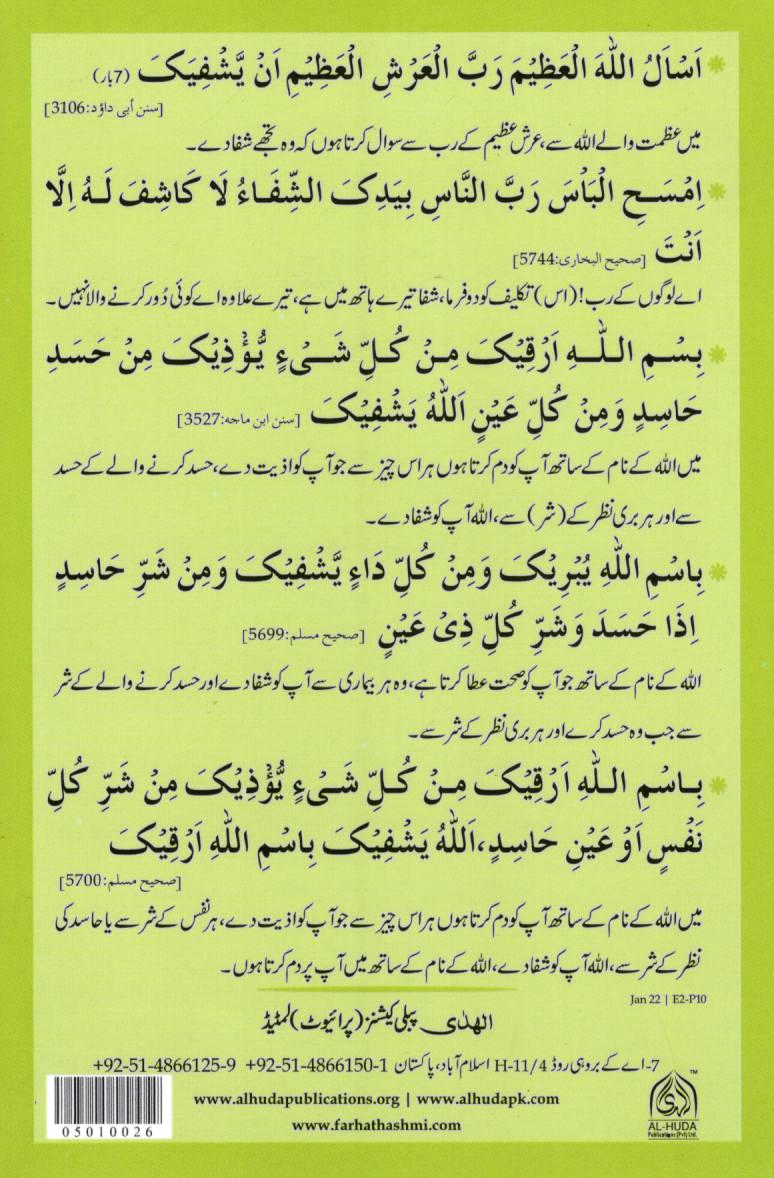 اَسْاَلُ اللّٰهَ الْعَظِيْمَ رَبَّ الْعَرْشِ الْعَظِيْمِ اَنْ يَّشْفِيَكَ (7بار)
[سنن أبی داؤد:3106]
میں عظمت والے اللہ سے، عرش عظیم کے رب سے سوال کرتا ہوں کہ وہ تجھے شفا دے۔
اِمْسَـحِ الْبَاْسَ رَبَّ النَّاسِ بِيَدِكَ الشِّفَـاءُ لَا كَاشِفَ لَـهُ اِلَّا
اَنْتَ [صحيح البخاری:5744]
اے لوگوں کے رب! (اس) تکلیف کو دو فرما، شفا تیرے ہاتھ میں ہے، تیرے علاوہ اے کوئی دُور کرنے والا نہیں۔
بِسْـمِ اللّٰـهِ اَرْقِيْكَ مِـنْ كُـلِّ شَـىْءٍ يُّؤْذِيْكَ مِنْ حَسَدِ
حَاسِدٍ وَمِنْ كُلِّ عَيْنٍ اَللّٰهُ يَشْفِيْكَ [سنن ابن ماجه:3527]
میں اللہ کے نام کے ساتھ آپ کو دم کرتا ہوں ہر اس چیز سے جو آپ کو اذیت دے، حسد کرنے والے کے حسد
سے اور ہر بری نظر کے (شر) سے، اللہ آپ کو شفا دے۔
بِاسْمِ اللّٰهِ يُبْرِيْكَ وَمِنْ كُلِّ دَاءٍ يَّشْفِيْكَ وَمِنْ شَرِّ حَاسِدٍ
اِذَا حَسَدَ وَشَرِّ كُلِّ ذِىْ عَيْنٍ [صحيح مسلم:5699]
اللہ کے نام کے ساتھ جو آپ کو صحت عطا کرتا ہے، وہ ہر بیماری سے آپ کو شفا دے اور حسد کرنے والے کے شر
سے جب وہ حسد کرے اور ہر بری نظر کے شر سے۔
بِـاسْمِ الـلّٰهِ اَرْقِيْكَ مِـنْ كُـلِّ شَـىْءٍ يُّؤْذِيْكَ مِنْ شَرِّ كُلِّ
نَفْسٍ اَوْ عَيْنِ حَاسِدٍ،اَللّٰهُ يَشْفِيْكَ بِاسْمِ اللّٰهِ اَرْقِيْكَ
[صحيح مسلم:5700]
میں اللہ کے نام کے ساتھ آپ کو دم کرتا ہوں ہر اس چیز سے جو آپ کو اذیت دے، ہر نفس کے شر سے یا حاسد کی
نظر کے شر سے، اللہ آپ کو شفا دے، اللہ کے نام کے ساتھ میں آپ پر دم کرتا ہوں۔
Jan 22 | E2-P10
الھدٰی پبلی کیشنز (پرائیوٹ) لمٹیڈ
7-اے کے بروہی روڈ H-11/4 اسلام آباد، پاکستان +92-51-4866150-1 +92-51-4866125-9
www.alhudapublications.org | www.alhudapk.com
www.farhathashmi.com
05010026
الهدى
TM
AL-HUDA
Publications (Pvt) Ltd.